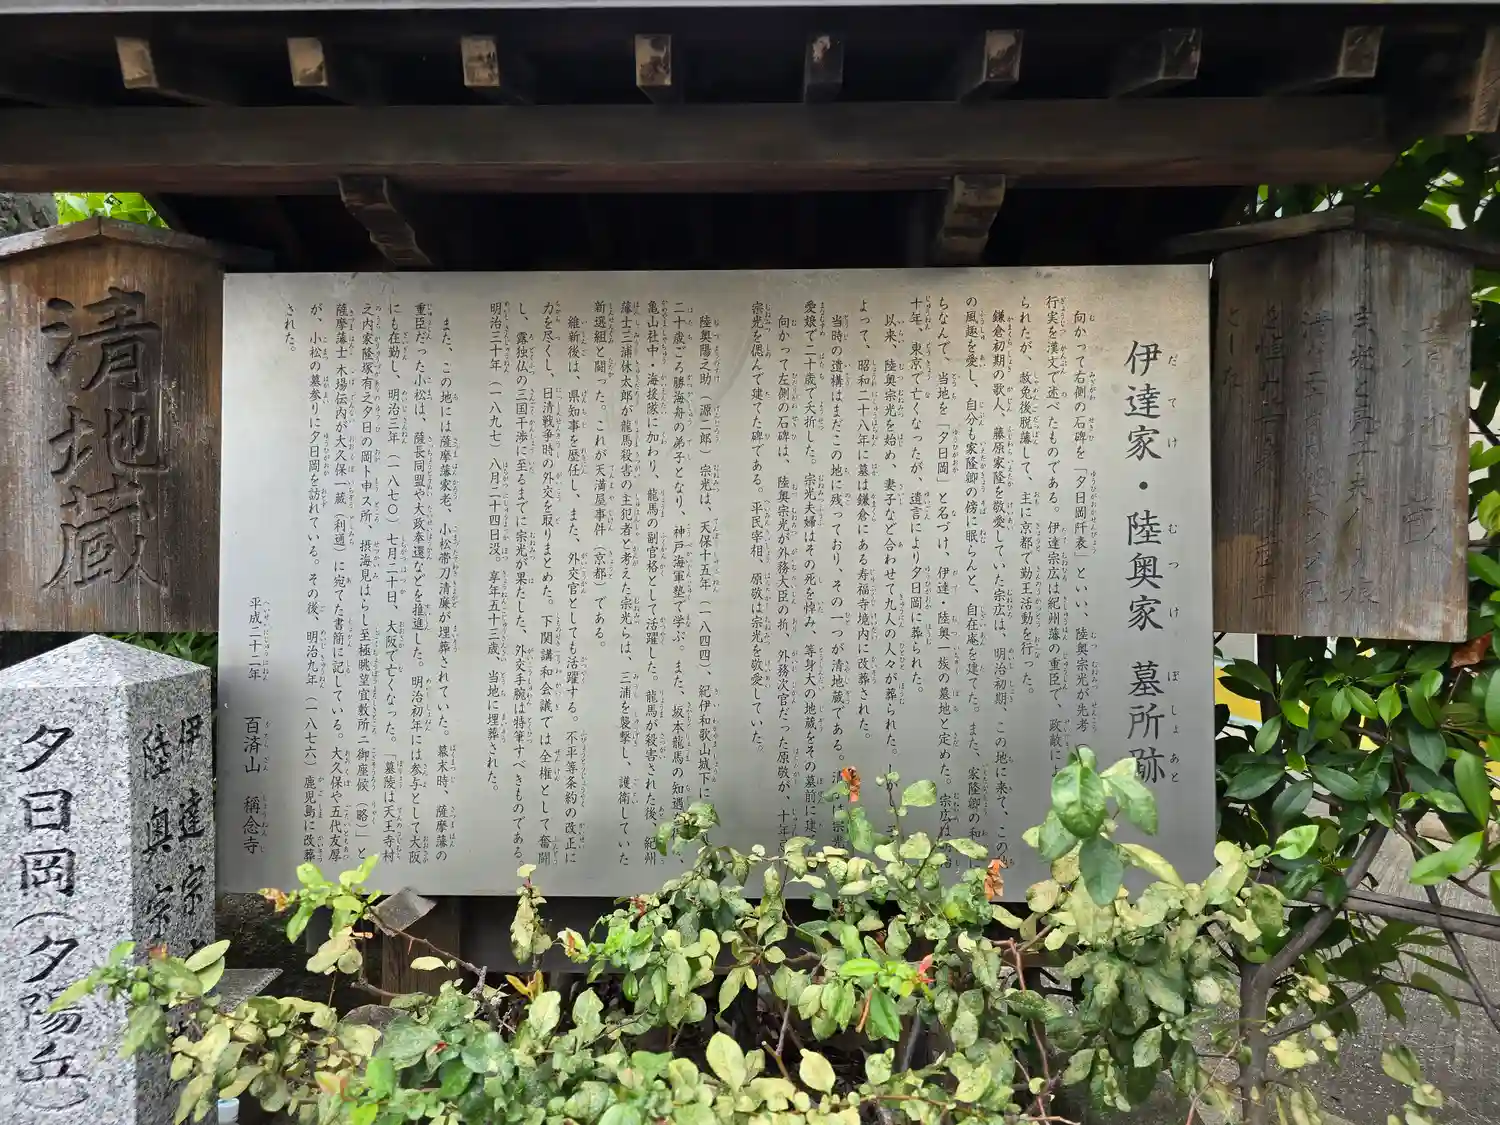 伊達家・陸奥家 墓所跡
向かって右側の石碑を「夕日岡阡表」といい、陸奥宗光が先考
行実を漢文で述べたものである。伊達宗広は紀州藩の重臣で、政敵に
られたが、赦免後脱藩して、主に京都で勤王活動を行った。
鎌倉初期の歌人、藤原家隆を敬愛していた宗広は、明治初期、この地に来て、この
の風趣を愛し、自分も家隆卿の傍に眠らんと、自在庵を建てた。また、家隆卿の和
ちなんで、当地を「夕日岡」と名づけ、伊達・陸奥一族の墓地と定めた。宗広は明治
十年、東京で亡くなったが、遺言により夕日岡に葬られた。
以来、陸奥宗光を始め、妻子など合わせて九人の人々が葬られた。しかし、
よって、昭和二十八年に墓は鎌倉にある寿福寺境内に改葬された。
当時の遺構はまだこの地に残っており、その一つが清地蔵である。清 宗光
愛娘で二十歳で夭折した。宗光夫婦はその死を悼み、等身大の地蔵をその墓前に建
向かって左側の石碑は、陸奥宗光が外務大臣の折、外務次官だった原敬が、十年
宗光を偲んで建てた碑である。平民宰相、原敬は宗光を敬愛していた。
陸奥陽之助（源二郎）宗光は、天保十五年（一八四四）、紀伊和歌山城下に
二十歳ごろ勝海舟の弟子となり、神戸海軍塾で学ぶ。また、坂本龍馬の知遇
亀山社中・海援隊に加わり、龍馬の副官格として活躍した。龍馬が殺害された後、紀州
藩士三浦休太郎が龍馬殺害の主犯者と考えた宗光らは、三浦を襲撃し、護衛していた
新選組と闘った。これが天満屋事件（京都）である。
維新後は、県知事を歴任し、また、外交官としても活躍する。不平等条約の改正に
力を尽くし、日清戦争時の外交を取りまとめた。下関講和会議では全権として奮闘
し、露独仏の三国干渉に至るまでに宗光が果たした、外交手腕は特筆すべきものである。
明治三十年（一八九七）八月二十四日没。享年五十三歳、当地に埋葬された。
また、この地には薩摩藩家老、小松帯刀清廉が埋葬されていた。幕末時、薩摩藩の
重臣だった小松は、薩長同盟や大政奉還などを推進した。明治初年には参与として大阪
にも在勤し、明治三年（一八七〇）七月二十日、大阪で亡くなった。「墓陵は天王寺村
之内家隆塚有之夕日の岡ト申ス所、摂海見はらし至極眺望宜敷所ニ御座候（略）」と
薩摩藩士 木場伝内が大久保一蔵（利通）に宛てた書簡に記している。大久保や五代友厚
が、小松の墓参りに夕日岡を訪れている。その後、明治九年（一八七六）鹿児島に改葬
された。
平成二十二年 百済山 稱念寺
清地蔵
伊達宗
陸奥宗
夕日岡(夕陽丘)